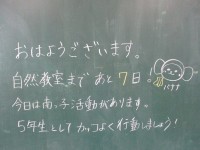 おはようございます。
自然教室まで あと7日!
今日は南っ子活動があります。
5年生として カッコよく行動しましょう!